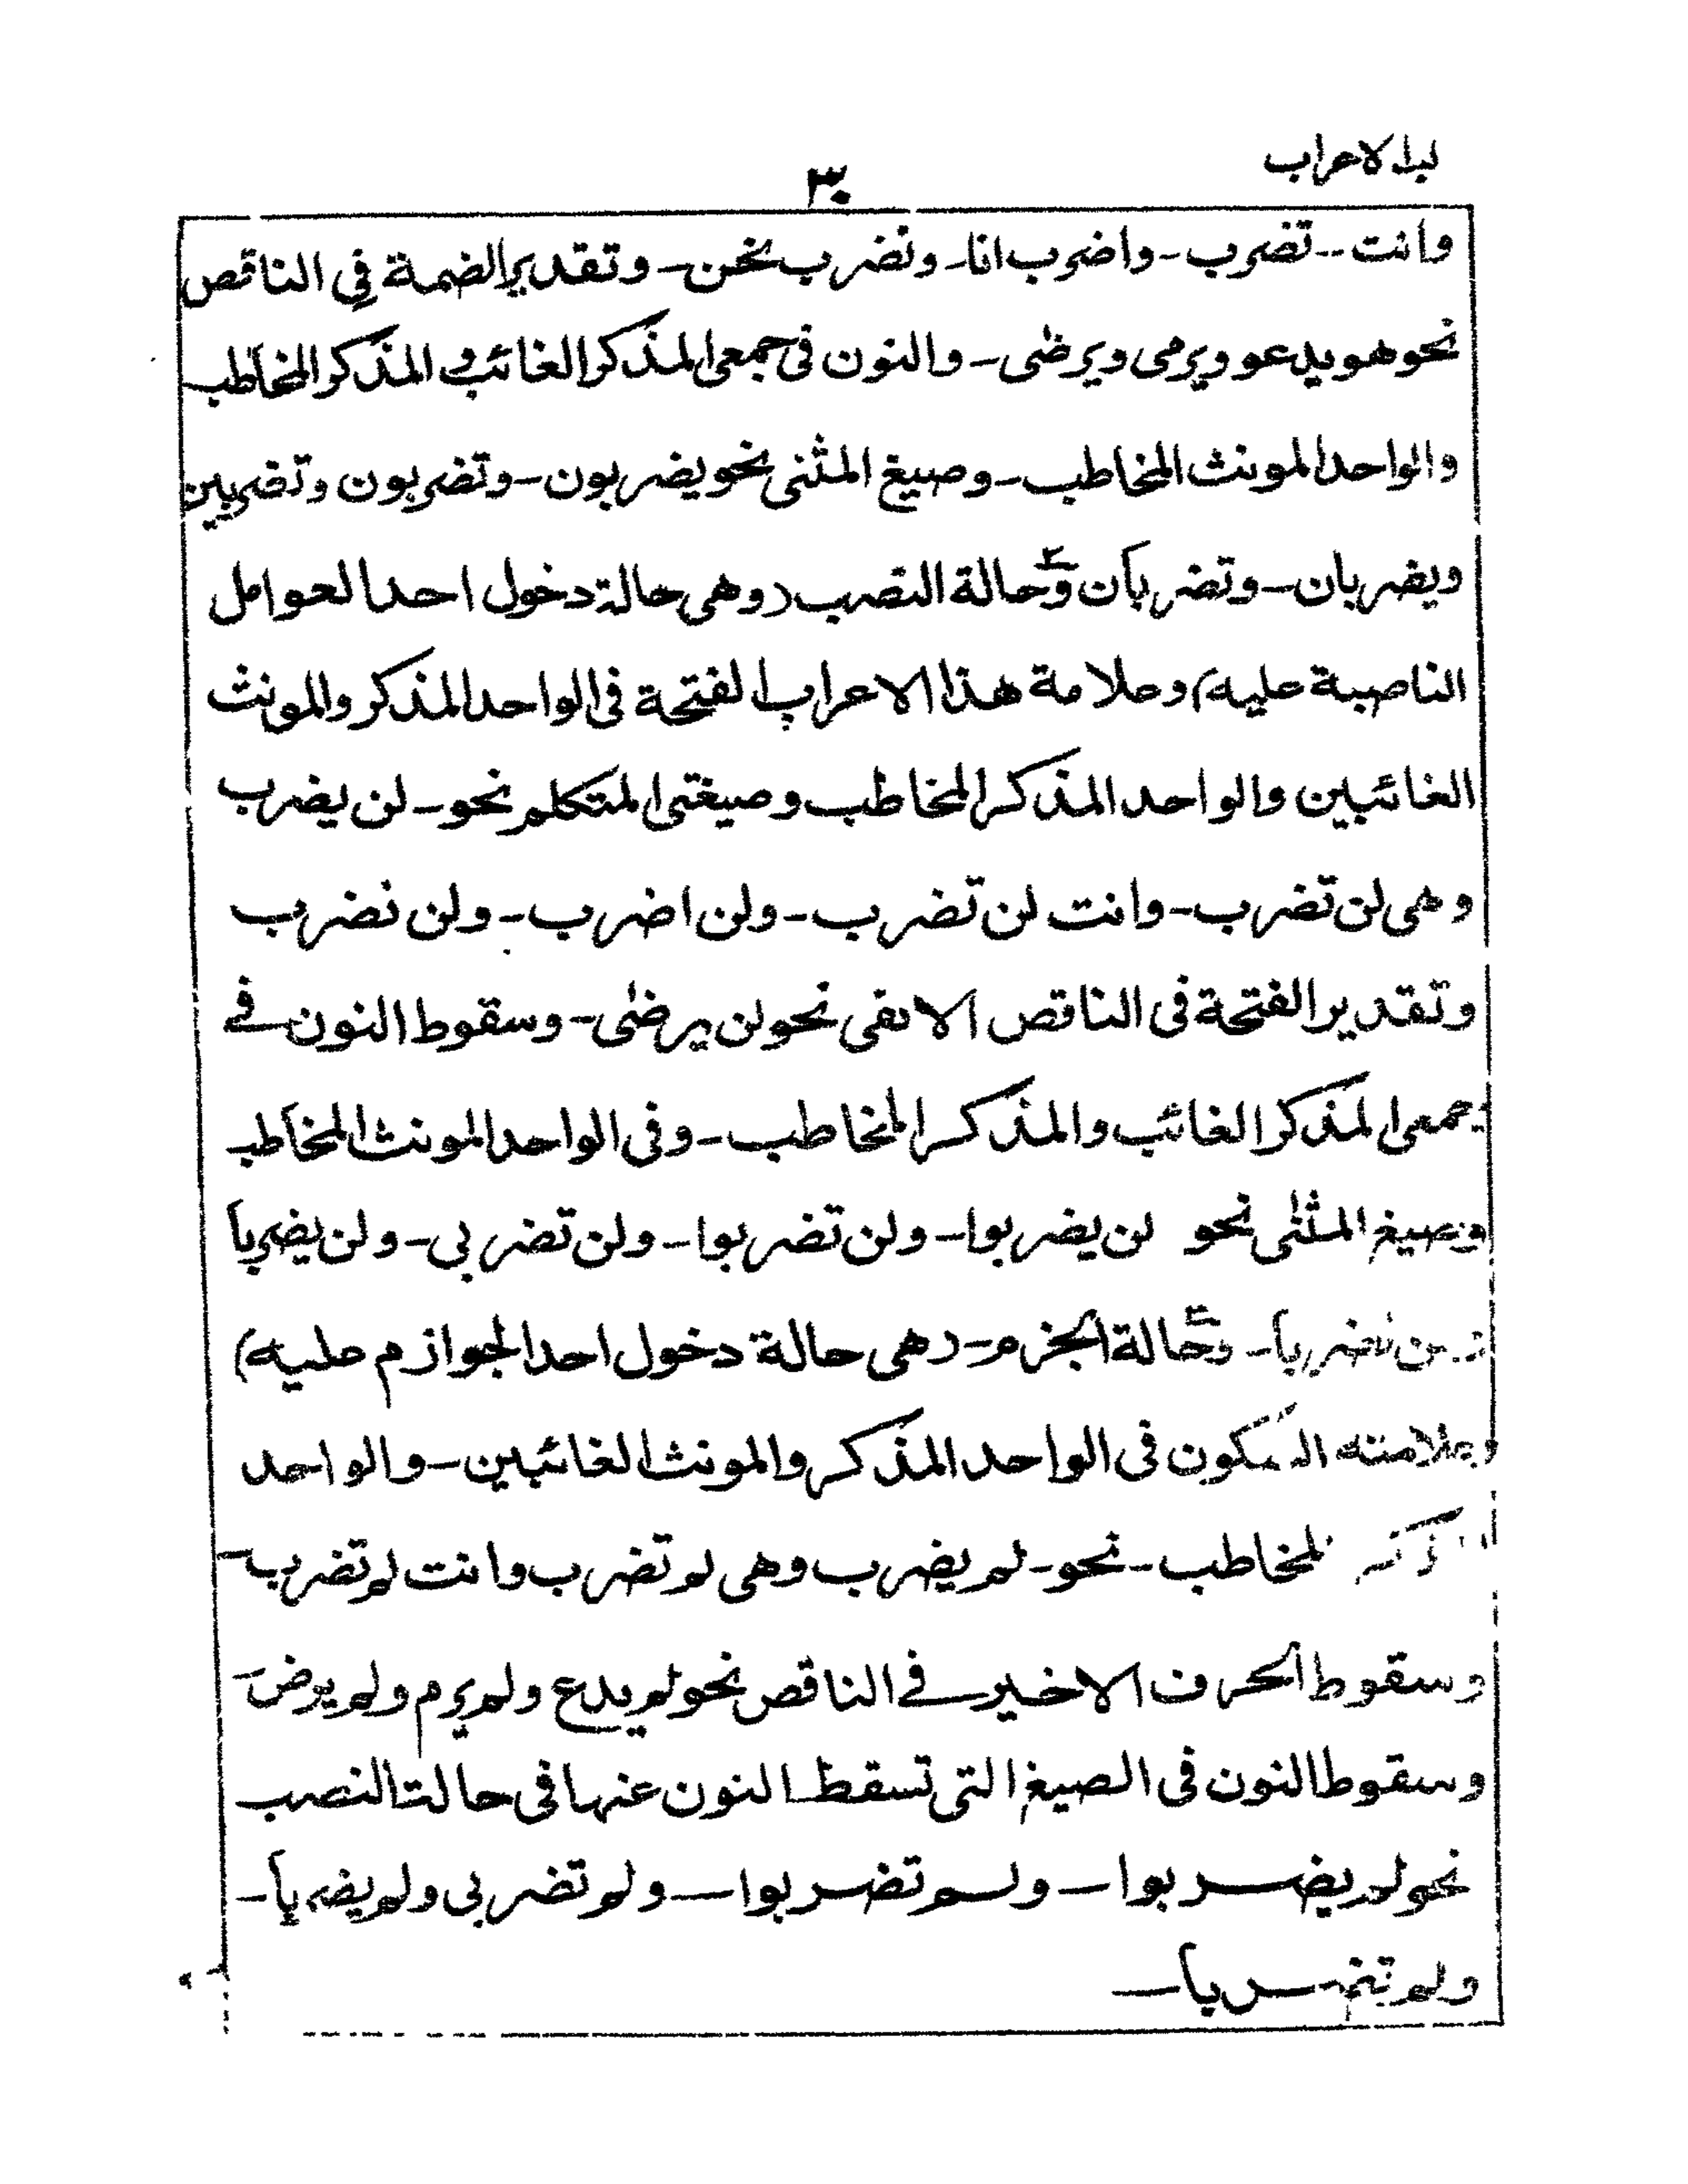 لباب الاعراب
٣٠
وانت -- تضرب - واضرب انا - ونضرب نحن - وتقدير الضمة في الناقص
نحو هو يدعو ويرمى ويرضى - والنون فى جمعى المذكر الغائب و المذكر المخاطب
والواحد المونث المخاطب - وصيغ المثنى نحو يضربون - وتضربون وتضربين
ويضربان - وتضربان وحالة النصب (وهى حالة دخول احد العوامل
الناصبة عليه) وعلامة هذا الاعراب الفتحة فى الواحد المذكر والمونث
الغائبين والواحد المذكر المخاطب وصيغتى المتكلم نحو - لن يضرب
وهى لن تضرب - وانت لن تضرب - ولن اضرب - ولن نضرب
وتقدير الفتحة فى الناقص الالفى نحو لن يرضى - وسقوط النون فے
جمعى المذكر الغائب والمذكر المخاطب - وفى الواحد المونث المخاطب
وصيغ المثنى نحو لن يضربوا - ولن تضربوا - ولن تضربى - ولن يضربا
ولن تضربا - وحالة الجزم - (هى حالة دخول احد الجوازم عليه)
وعلامته السكون فى الواحد المذكر والمونث الغائبين - والواحد
المخاطب - نحو - لم يضرب وهى لم تضرب وانت لم تضرب -
وسقوط الحرف الاخير فے الناقص نحو لم يدع ولم يرم ولم يرض -
وسقوط النون فى الصيغ التى تسقط النون عنها فى حالت النصب
نحو لم يضربوا - ولم تضربوا - ولم تضربى ولم يضربا -
ولم تضربا -